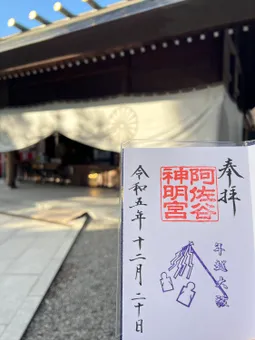 奉拝
阿佐谷
神明宮
年越大祓
令和五年十二月二十日